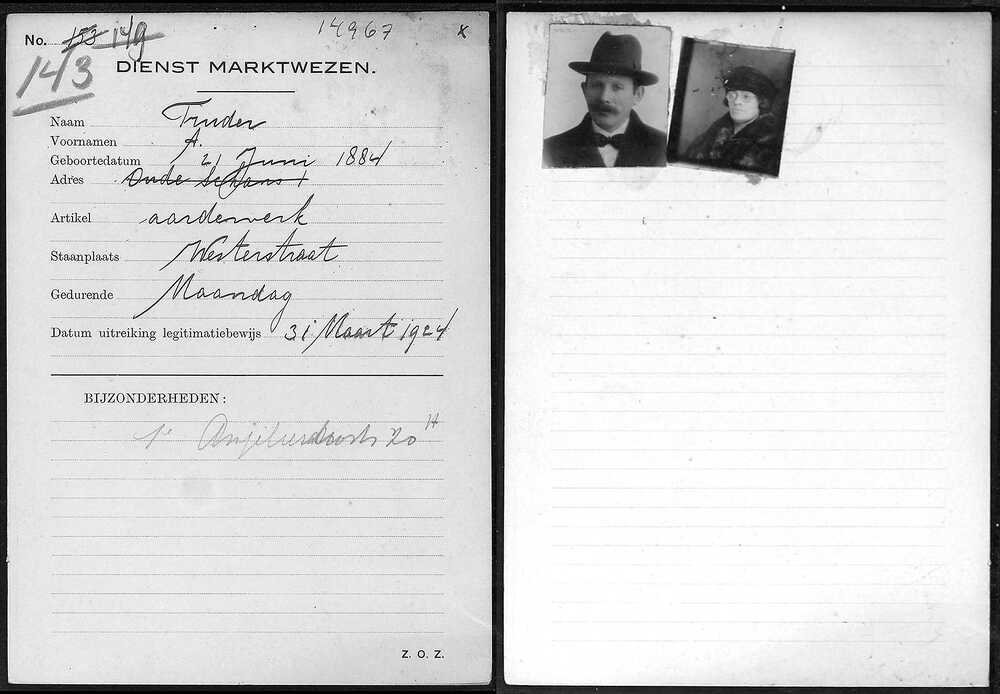 No. 153 149 14967 x
143
DIENST MARKTWEZEN.
Naam Truder
Voornamen A.
Geboortedatum 21 Juni 1884
Adres Oude Schans 1
Artikel aardewerk
Staanplaats Westerstraat
Gedurende Maandag
Datum uitreiking legitimatiebewijs 31 Maart 1924
BIJZONDERHEDEN:
1e Anjeliersdwarsstr 20 H
Z. O. Z.